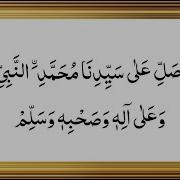 صَلِّ عَلٰى سَيِّدِنَا مُحَمَّدِ ۨالنَّبِيِّ
وَعَلٰى آلِهٖ وَصَحْبِهٖ وَسَلِّمْ